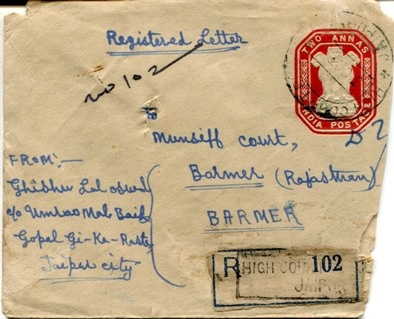 Registered Letter
no 102
TWO ANNAS
INDIA POSTAGE
To
Munsiff Court,
Barmer (Rajasthan)
BARMER
FROM:-
Ghishu Lal oswal
c/o Umrao Mal
Gopal Gi-Ka-Rasta
Jaipur city
R HIGH COU 102
JAIPUR